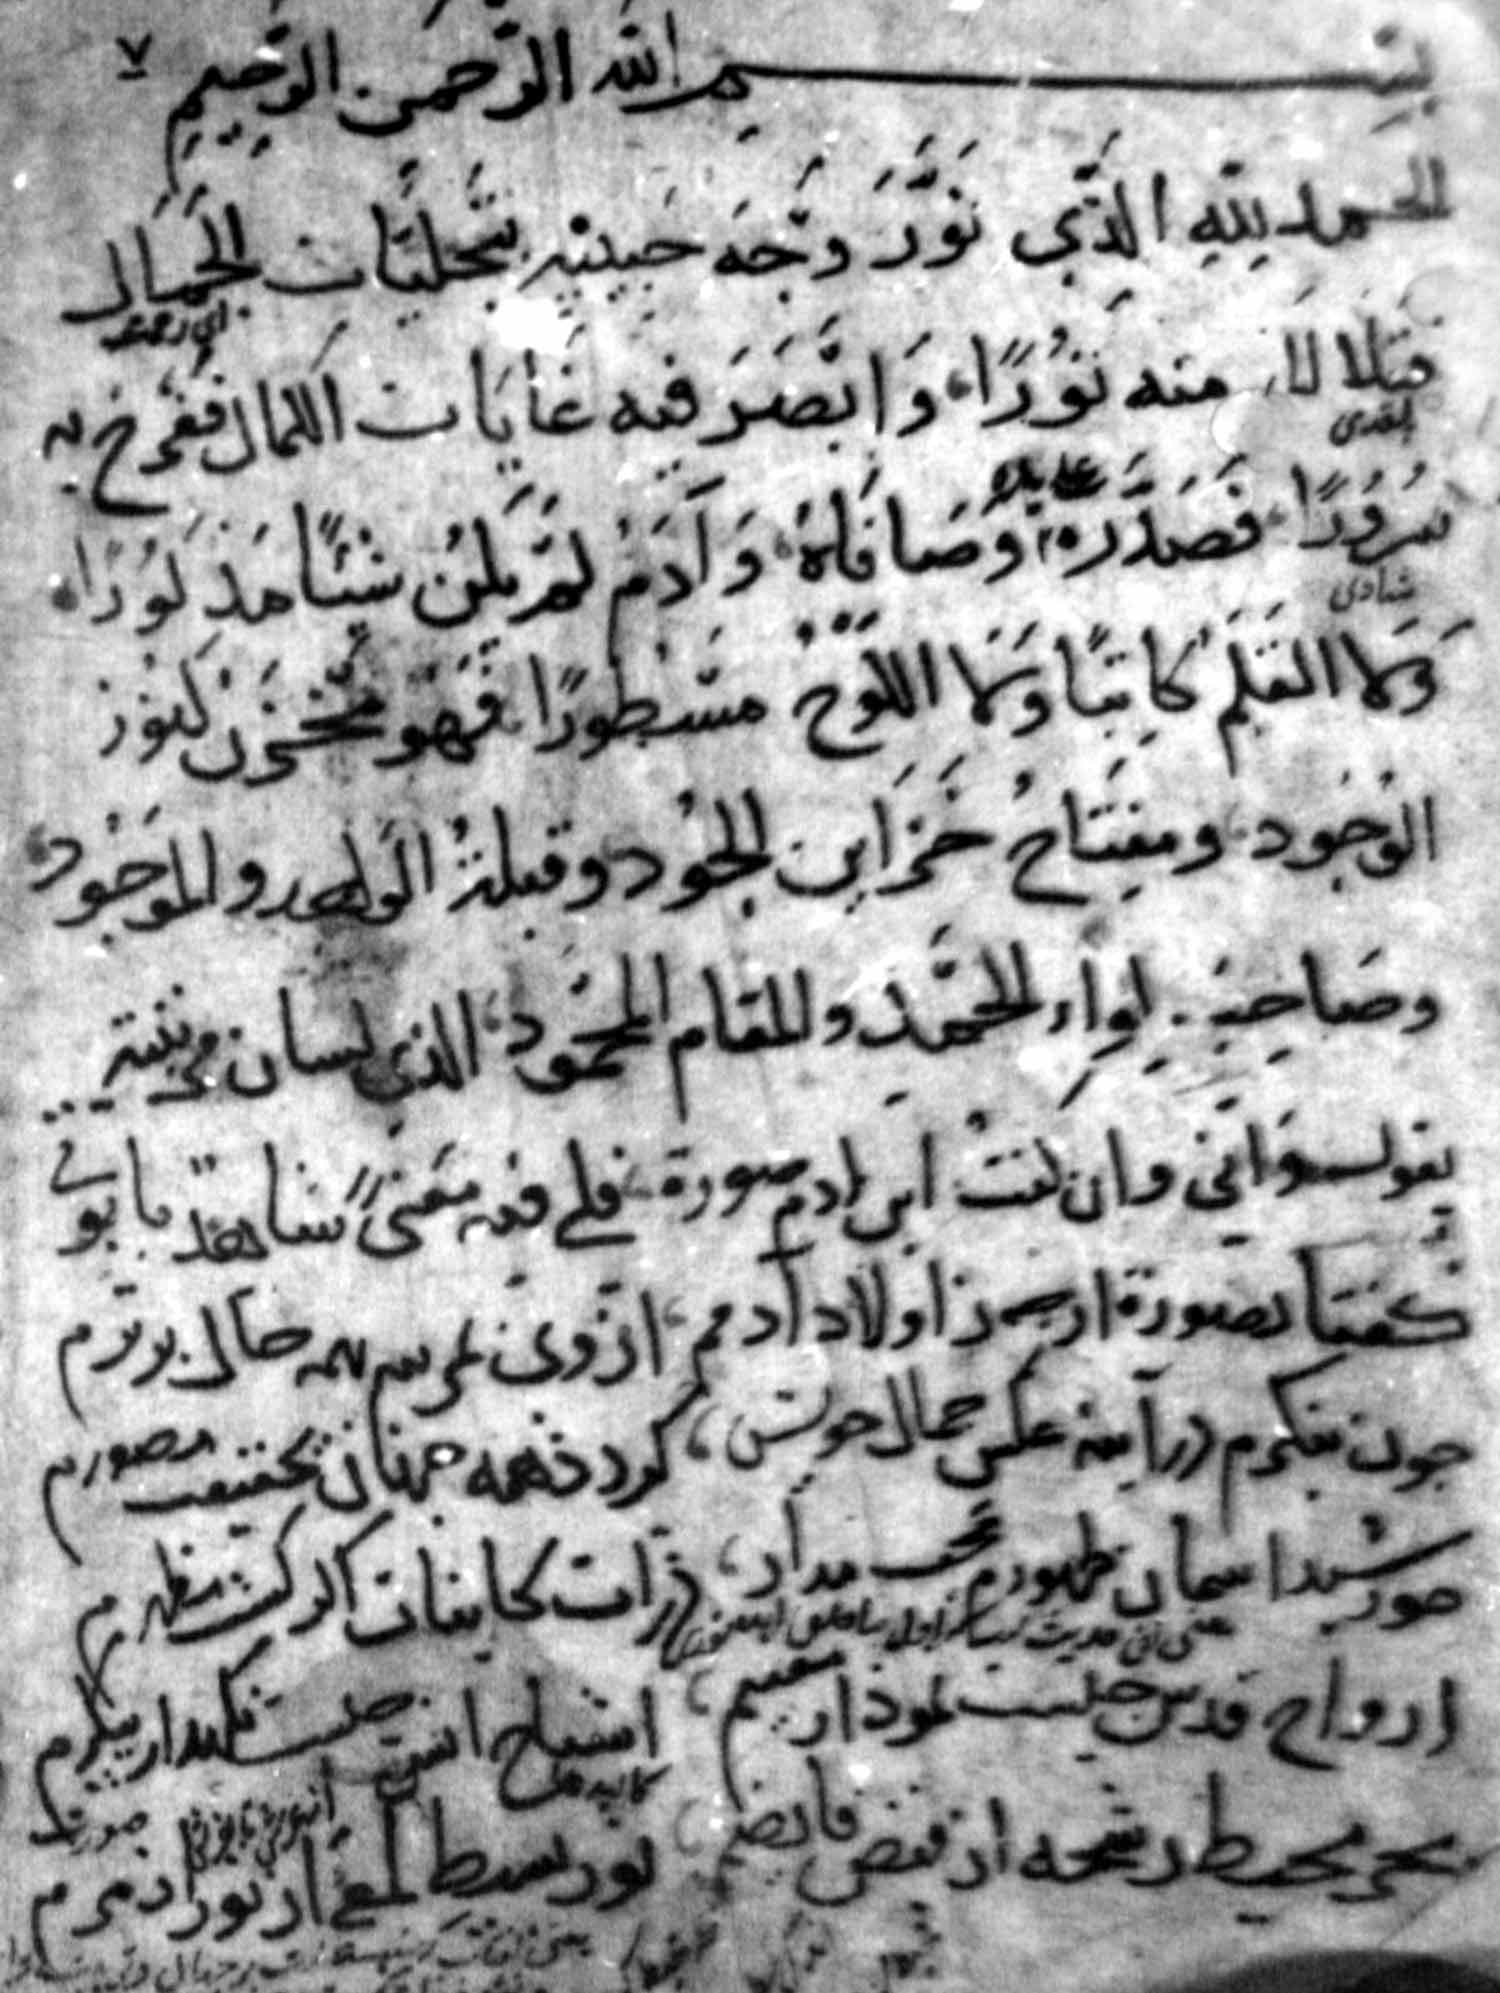 ٧
بسم الله الرحمن الرحيم
الحمد لله الذي نَوَّرَ وَجْهَ حَبِيبِهِ بتَجَلِّيَات الجَمَال
فتلالا منه نُورًا، وَابْصَرَ فيه غَايَات الكمال ففرح به
سُرُورًا، فَصَدَّرَهُ وَصَافَاهُ وَآدَمُ لَمْ يَكُنْ شَيْئًا مَذْكُورًا،
شادى
وَلا القَلَمُ كَاتِبًا وَلا اللَّوْحُ مَسْطُورًا فَهُوَ مَخْزَن كُنُوز
الوُجُود، ومِفتَاحُ خَزَاين الجُود وقبلةُ الواجد والموجود
وصَاحِب لِوَاء الحَمْد والمقام المحمود، الذي لسان مرتبته
يقول وَانّي وان كنتُ ابن ادم صورة، فلي فيه معنىً شاهد بابوتي
كفتا بصورة ارچه ز اولاد آدمم، از روى مرتبه بهمه حال برترم
چون بنكرم در آينه عكس جمال خويش، كردد همه جهان بحقيقت مصورم
خورشيد اسمان ظهورم عجب مدار، ذرات كاينات اكر كشت مظهرم
ارواح قدس چيست نمودار معنيم، اشباح انس چيست نكهدار پيكرم
بحر محيط رشحه از فيض فايضم، نور بسيط لمعه از نور ازهرم